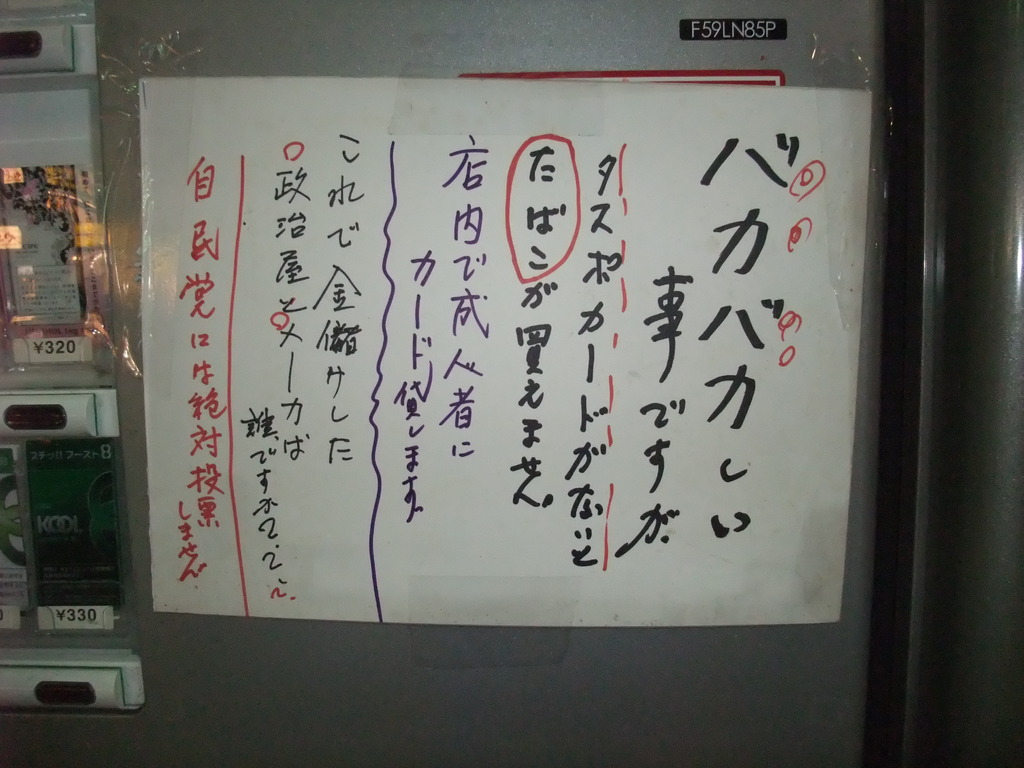 F59LN85P
バカバカしい
事ですが、
タスポカードがないと
たばこが買えません。
店内で成人者に
カード貸します。
これで金儲けした
政治屋とメーカーは
誰ですか?・?・?・
自民党には絶対投票
しません。
¥320
プチッ!! ブースト8
KOOL
¥330